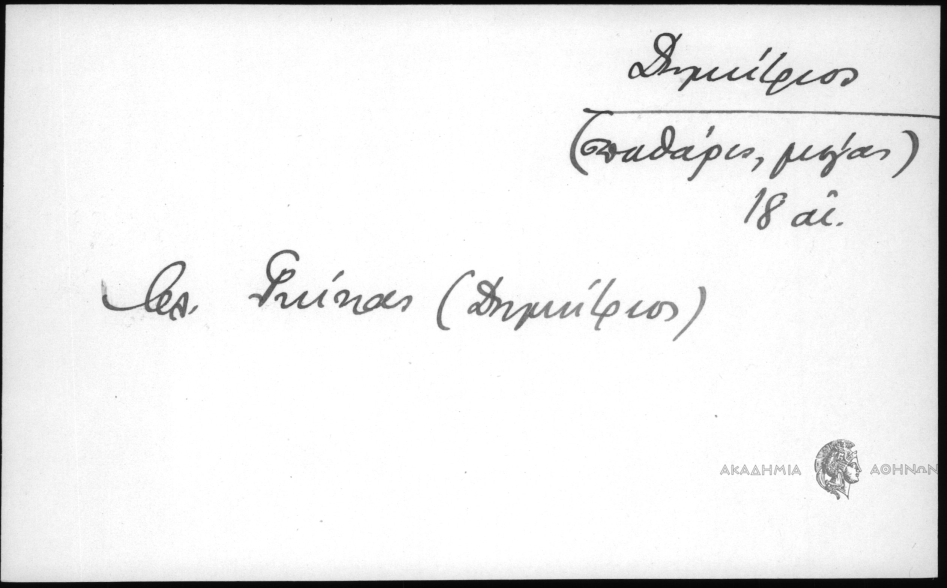 Δημήτριος
(σπαθάρις, μέγας)
18 αἰ.
Γκίκας (Δημήτριος)
ΑΚΑΔΗΜΙΑ ΑΘΗΝΩΝ